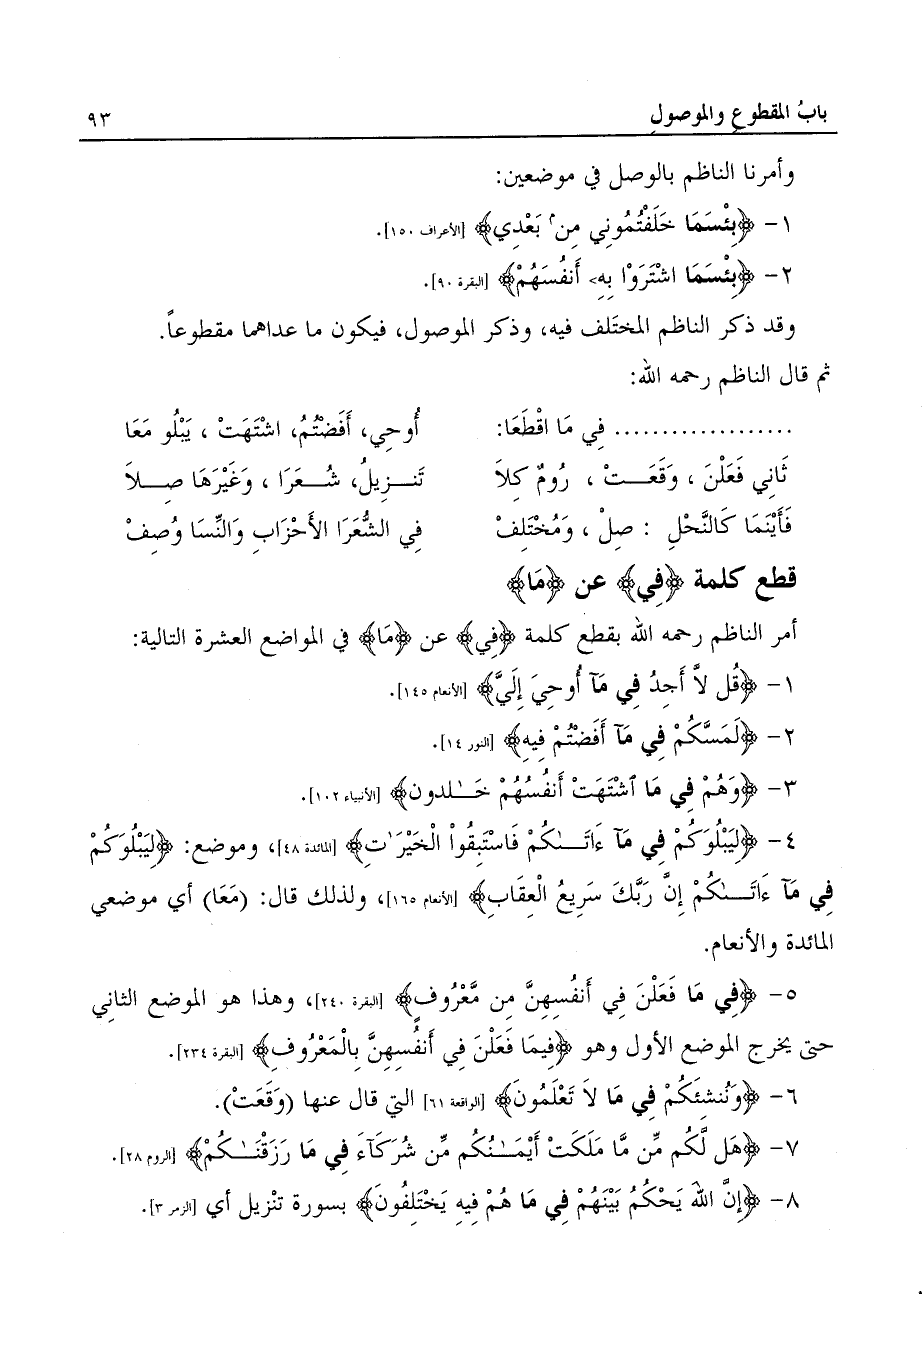 بابُ المقطوعِ والموصولِ ٩٣
وأمرنا الناظم بالوصل في موضعين:
١- ﴿بِئْسَمَا خَلَفْتُمُونِي مِنۢ بَعْدِي﴾ [الأعراف ١٥٠].
٢- ﴿بِئْسَمَا اشْتَرَوْا بِهِۦ أَنفُسَهُمْ﴾ [البقرة ٩٠].
وقد ذكر الناظم المختَلف فيه، وذكر الموصول، فيكون ما عداهما مقطوعاً.
ثم قال الناظم رحمه الله:
.................. فِي مَا اقْطَعَا: أُوحِي، أَفَضْتُمُ، اشْتَهَتْ ، يَبْلُو مَعَا
ثَانِي فَعَلْنَ ، وَقَعَـــتْ ، رُومٌ كِلاَ تَنـــزِيلُ، شُـــعَرَا ، وَغَيْرَهَا صِـــلاَ
فَأَيْنَمَا كَالنَّحْلِ : صِلْ ، وَمُخْتَلِفْ فِي الشُّعَرَا الأَحْزَابِ وَالنِّسَا وُصِفْ
قطع كلمة ﴿فِي﴾ عن ﴿مَا﴾
أمر الناظم رحمه الله بقطع كلمة ﴿فِي﴾ عن ﴿مَا﴾ في المواضع العشرة التالية:
١- ﴿قُل لاَّ أَجِدُ فِي مَآ أُوحِيَ إِلَيَّ﴾ [الأنعام ١٤٥].
٢- ﴿لَمَسَّكُمْ فِي مَآ أَفَضْتُمْ فِيهِ﴾ [النور ١٤].
٣- ﴿وَهُمْ فِي مَا ٱشْتَهَتْ أَنفُسُهُمْ خَـٰلِدُونَ﴾ [الأنبياء ١٠٢].
٤- ﴿لِيَبْلُوَكُمْ فِي مَآ ءَاتَـىٰكُمْ فَاسْتَبِقُواْ الْخَيْرَٰتِ﴾ [المائدة ٤٨]، وموضع: ﴿لِيَبْلُوَكُمْ
فِي مَآ ءَاتَـىٰكُمْ إِنَّ رَبَّكَ سَرِيعُ الْعِقَابِ﴾ [الأنعام ١٦٥]، ولذلك قال: (مَعَا) أي موضعي
المائدة والأنعام.
٥- ﴿فِي مَا فَعَلْنَ فِي أَنفُسِهِنَّ مِن مَّعْرُوفٍ﴾ [البقرة ٢٤٠]، وهذا هو الموضع الثاني
حتى يخرج الموضع الأول وهو ﴿فِيمَا فَعَلْنَ فِي أَنفُسِهِنَّ بِالْمَعْرُوفِ﴾ [البقرة ٢٣٤].
٦- ﴿وَنُنشِئَكُمْ فِي مَا لاَ تَعْلَمُونَ﴾ [الواقعة ٦١] التي قال عنها (وَقَعَتْ).
٧- ﴿هَل لَّكُم مِّن مَّا مَلَكَتْ أَيْمَـٰنُكُم مِّن شُرَكَآءَ فِي مَا رَزَقْنَـٰكُمْ﴾ [الروم ٢٨].
٨- ﴿إِنَّ اللهَ يَحْكُمُ بَيْنَهُمْ فِي مَا هُمْ فِيهِ يَخْتَلِفُونَ﴾ بسورة تنْزيل أي [الزمر ٣].